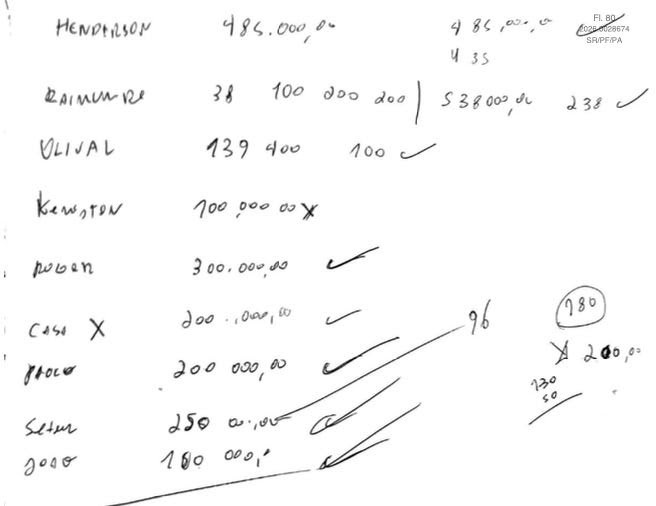 Fl. 80
2026.0028674
SR/PF/PA
HENDERSON 485.000,00 485,000,00
435
RAIMUNDO 38 100 200 200 | 538000,00 238 ✓
OLIVAL 139 400 100 ✓
100,000,00 X
300.000,00 ✓
CASA X 200.,000,00 ✓
96
180
PAOLO 200 000,00 ✓
X 200,00
130
50
250
JOAO 180 000,